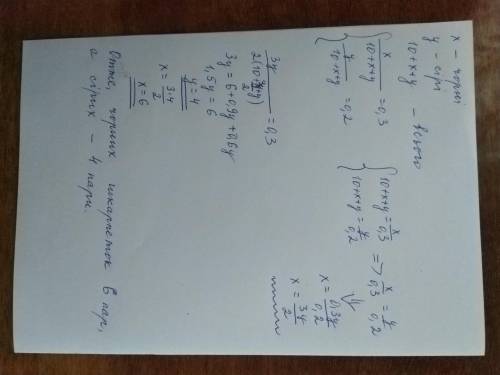 x – чорні
y – сірі
10 + x + y – всього
{ x/(10+x+y) = 0,3
{ y/(10+x+y) = 0,2
{ 10+x+y = x/0,3
{ 10+x+y = y/0,2
=> x/0,3 = y/0,2
⇓
x = 0,3y/0,2
x = 3y/2
= 0,3
3y = 6 + 0,9y + 0,6y
1,5y = 6
y = 4
x = 3·4/2
x = 6
Отже, чорних шкарпеток 6 пар,
а сірих – 4 пари.